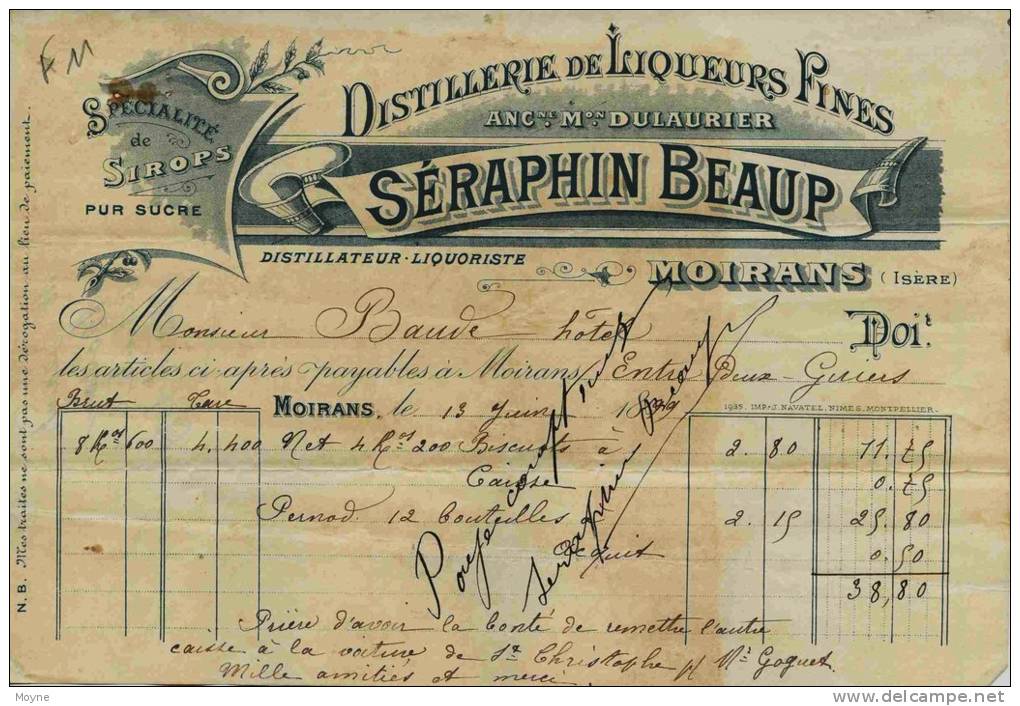 FM
DISTILLERIE DE LIQUEURS FINES
ANCNE. MON DULAURIER
SÉRAPHIN BEAUP
SPÉCIALITÉ
de
SIROPS
PUR SUCRE
DISTILLATEUR-LIQUORISTE
MOIRANS (ISÈRE)
Monsieur Baude hôtel Doit
les articles ci-après payables à Moirans Entre Deux-Guiers
Brut Tare MOIRANS, le 13 Juin
1935. IMP. J. NAVATEL, NIMES. MONTPELLIER.
8 Kos 600 4,400 Net 4 Kos 200 Biscuits à 2.80 11.75
Caisse 0.75
Pernod 12 bouteilles 2.15 25.80
acquit 0.50
38,80
Pour acquit comptant
Séraphin Beaup
Prière d'avoir la bonté de remettre l'autre
caisse à la voiture de St Christophe p/ Mr Goguet
Mille amitiés et merci
N.B. Mes traites ne sont pas une dérogation au lieu de paiement.
Moyne
delcampe.net